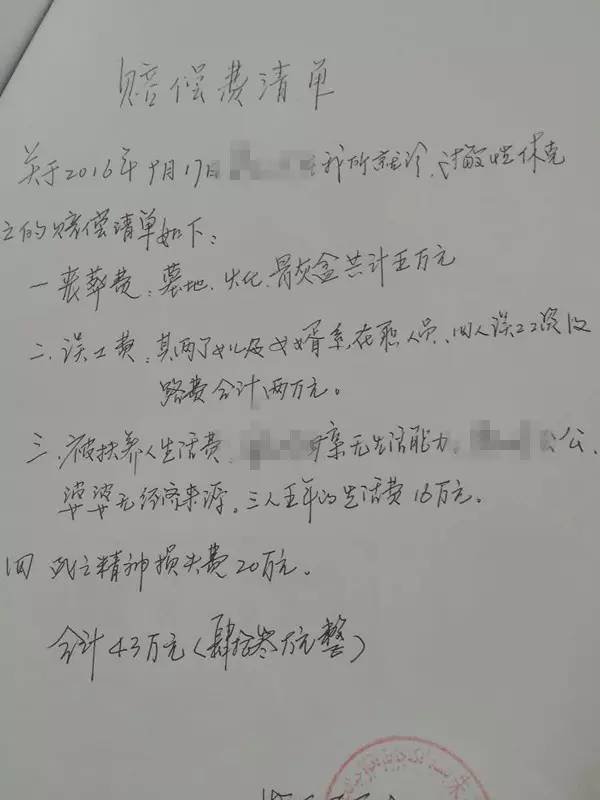 赔偿费清单
关于2016年9月17日 我所就诊,过敏性休克
亡的赔偿清单如下:
一 丧葬费:墓地、火化、骨灰盒共计五万元
二、误工费:其两个女儿及女婿系在职人员、四人误工资及
路费合计两万元。
三、被扶养人生活费, 母亲无生活能力, 公公、
婆婆无经济来源。三人五年的生活费16万元。
四 死亡精神损失费20万元。
合计43万元(肆拾叁万元整)